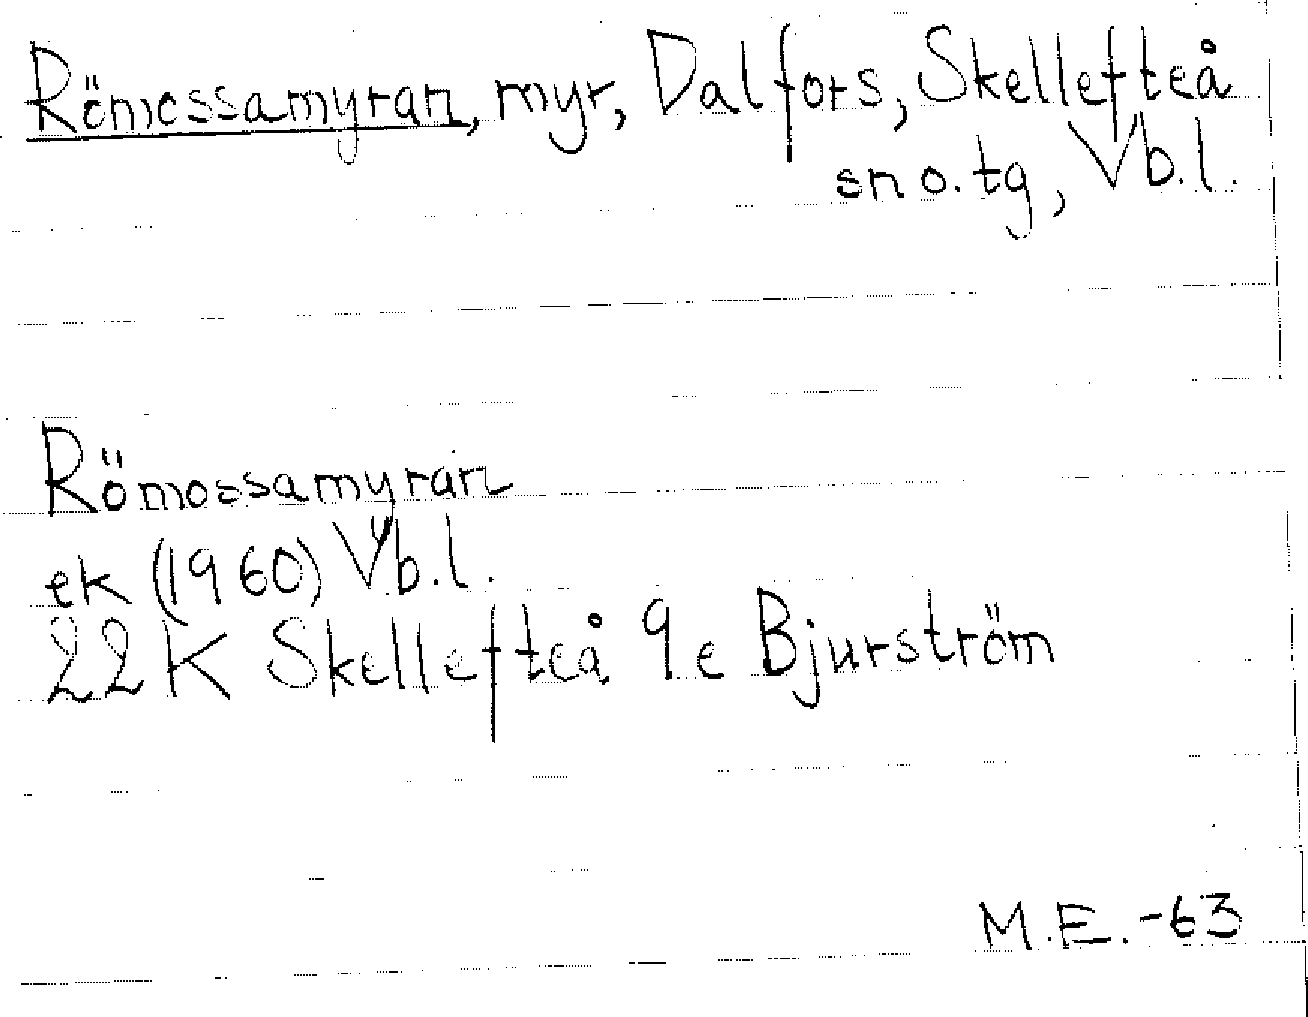 Römossamyran, myr, Dalfors, Skellefteå
sn o. tg, Vb.l.
Römossamyran
ek (1960) Vb.l.
22K Skellefteå 9e Bjurström
M.E. -63